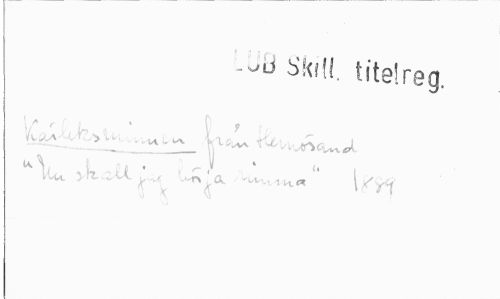 LUB Skill. titelreg.
Kärleksminnen från Hernösand
"Nu skall jag börja rimma" 1889